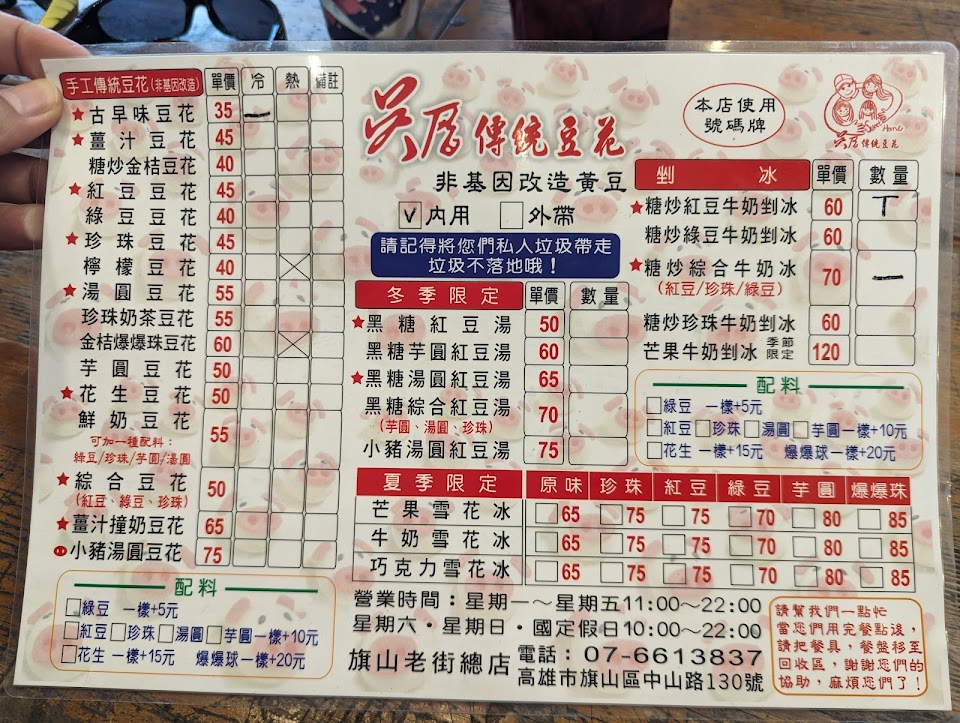 手工傳統豆花(非基因改造) 單價 冷 熱 備註
古早味豆花 35 一
薑汁豆花 45
糖炒金桔豆花 40
紅豆豆花 45
綠豆豆花 40
珍珠豆花 45
檸檬豆花 40
湯圓豆花 55
珍珠奶茶豆花 55
金桔爆爆珠豆花 60
芋圓豆花 50
花生豆花 50
鮮奶豆花 55
可加一種配料：
綠豆/珍珠/芋圓/湯圓
綜合豆花 50
(紅豆、綠豆、珍珠)
薑汁撞奶豆花 65
小豬湯圓豆花 75
配料
綠豆 一樣+5元
紅豆 珍珠 湯圓 芋圓一樣+10元
花生 一樣+15元 爆爆球一樣+20元
吴厝傳統豆花
非基因改造黃豆
V內用 外帶
請記得將您們私人垃圾帶走
垃圾不落地哦！
冬季限定 單價 數量
黑糖紅豆湯 50
黑糖芋圓紅豆湯 60
黑糖湯圓紅豆湯 65
黑糖綜合紅豆湯 70
(芋圓、湯圓、珍珠)
小豬湯圓紅豆湯 75
本店使用
號碼牌
Home
吴厝傳統豆花
剉冰 單價 數量
糖炒紅豆牛奶剉冰 60 丅
糖炒綠豆牛奶剉冰 60
糖炒綜合牛奶冰 70 一
(紅豆/珍珠/綠豆)
糖炒珍珠牛奶剉冰 60
芒果牛奶剉冰 季節限定 120
配料
綠豆 一樣+5元
紅豆 珍珠 湯圓 芋圓一樣+10元
花生 一樣+15元 爆爆球一樣+20元
夏季限定 原味 珍珠 紅豆 綠豆 芋圓 爆爆珠
芒果雪花冰 65 75 75 70 80 85
牛奶雪花冰 65 75 75 70 80 85
巧克力雪花冰 65 75 75 70 80 85
營業時間：星期一～星期五11:00～22:00
星期六・星期日・國定假日10:00～22:00
旗山老街總店
電話：07-6613837
高雄市旗山區中山路130號
請幫我們一點忙
當您們用完餐點後，
請把餐具，餐盤移至
回收區，謝謝您們的
協助，麻煩您們了！